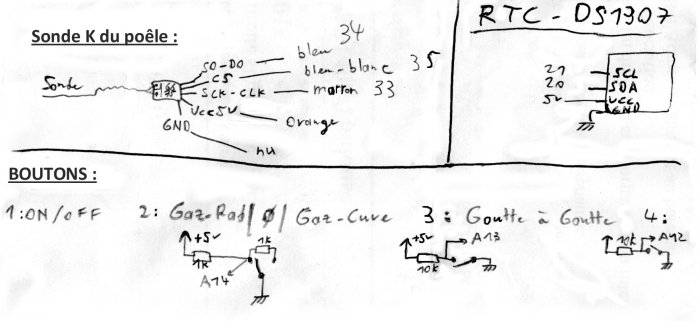 Sonde K du poêle :
SO-DO bleu 34
CS bleu-blanc 35
SCK-CLK marron 33
Vcc 5V orange
GND nu
Sonde
RTC - DS1307
21 SCL
20 SDA
5v VCC
GND
BOUTONS :
1:ON/OFF
2: Gaz-Rad/ Ø / Gaz-Cuve
+5v
1K
1K
A14
3: Goutte à Goutte
+5v
A13
10K
4:
10K
A12